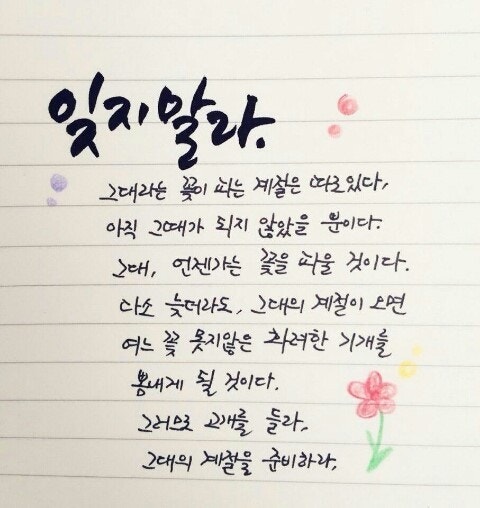 잊지말라.
그대라는 꽃이 피는 계절은 따로있다,
아직 그때가 되지 않았을 뿐이다.
그대, 언젠가는 꽃을 피울 것이다.
다소 늦더라도, 그대의 계절이 오면
여느 꽃 못지않은 화려한 기개를
뽐내게 될 것이다.
그러므로 고개를 들라,
그대의 계절을 준비하라,